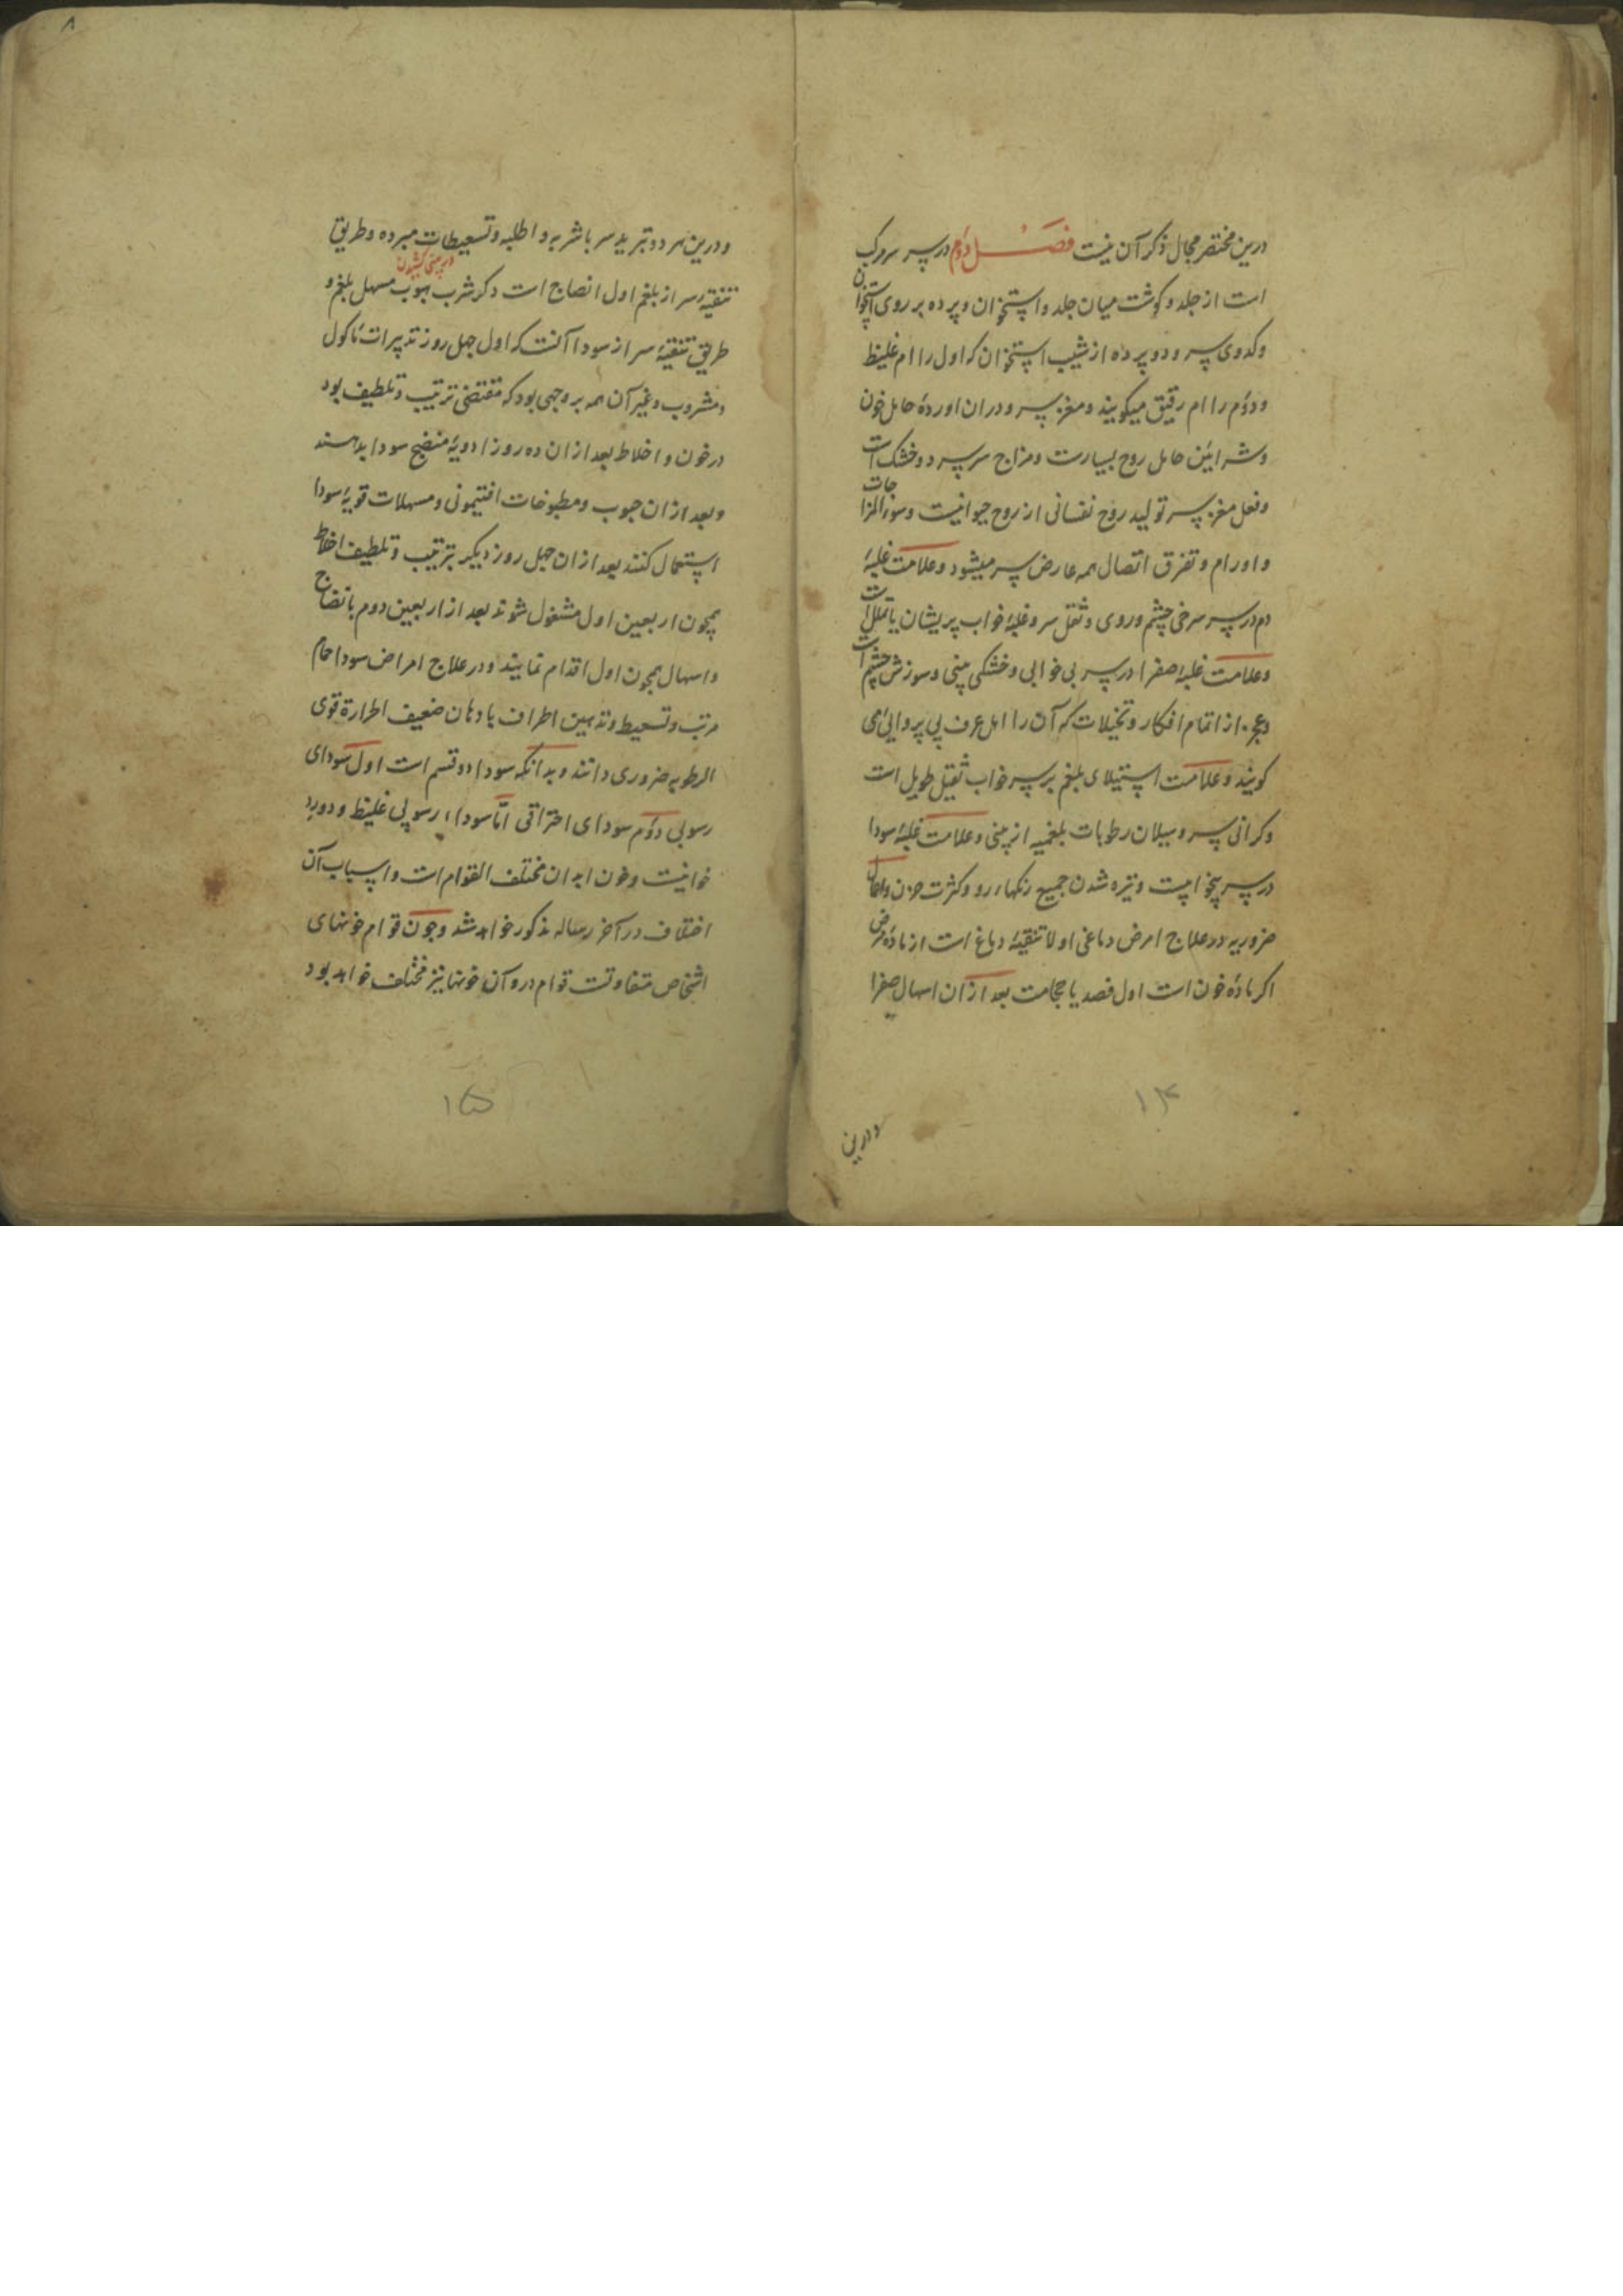 درین مختصر مجال ذکر آن نیست فصل دوم در سر سر مرکب
است از جلد و کوشت میان جلد و استخوان و پرده بر روی استخوان
و کدوی سر و دو پرده از شیب استخوان که اول را ام غلیظ
و دوم را ام رقیق میکویند و مغز سر و دران اورده حامل خون
و شرائین حامل روح بسیارست و مزاج سر سرد و خشک است
و فعل مغز سر تولید روح نفسانی از روح حیوانیست و سوء المزاجات
و اورام و تفرق اتصال همه عارض سر میشود و علامت غلبهٔ
دم در سر سرخی چشم و روی و ثقل سر و غلبهٔ خواب پریشان یا تملل است
و علامت غلبهٔ صفرا در سر بی خوابی و خشکی بینی و سوزش چشم است
و عجز از اتمام افکار و تخیلات که آن را اهل عرف بی پروایی می
کویند و علامت استیلای بلغم بر سر خواب ثقیل طویل است
و کرانی سر و سیلان رطوبات بلغمیه از بینی و علامت غلبهٔ سودا
در سر بیخوابیست و تیره شدن جمیع رنکهاء رو و کثرت حزن و اعمال
ضروریه در علاج امرض دماغی اولا تنقیهٔ دماغ است از مادهٔ مرض
اکر مادهٔ خون است اول فصد یا حجامت بعد ازان اسهال صفرا
۱۴
و درین
۸
و درین هر دو تبرید سر باشربه و اطلیه و تسعیطات مبرده و طریق
در بینی کشیدن
تنقیهٔ سر از بلغم اول انضاج است دکر شرب حبوب مسهل بلغم و
طریق تنقیهٔ سر از سودا آنست که اول چهل روز تدبیرات مأکول
و مشروب و غیر آن همه بر وجهی بود که مقتضی ترتیب و تلطیف بود
در خون و اخلاط بعد ازان ده روز ادویهٔ منضج سودا بدهند
و بعد ازان حبوب و مطبوخات افتیمونی و مسهلات قویهٔ سودا
استعمال کنند بعد ازان چهل روز دیکر بترتیب و تلطیف اخلاط
همچون اربعین اول مشغول شوند بعد از اربعین دوم بانضاج
و اسهال همچون اول اقدام نمایند و در علاج امراض سودا حمام
مرتب و تسعیط و تدهین اطراف بادهان ضعیف الحرارة قوی
الرطوبه ضروری دانند و بدانکه سودا دو قسم است اول سودای
رسوبی دوم سودای احتراقی اما سوداء رسوبی غلیظ و دورد
خونیست و خون ابدان مختلف القوام است و اسباب آن
اختلاف در آخر رساله مذکور خواهد شد و چون قوام خونهای
اشخاص متفاوتست قوام درو آن خونها نیز مختلف خواهد بود
۱۵